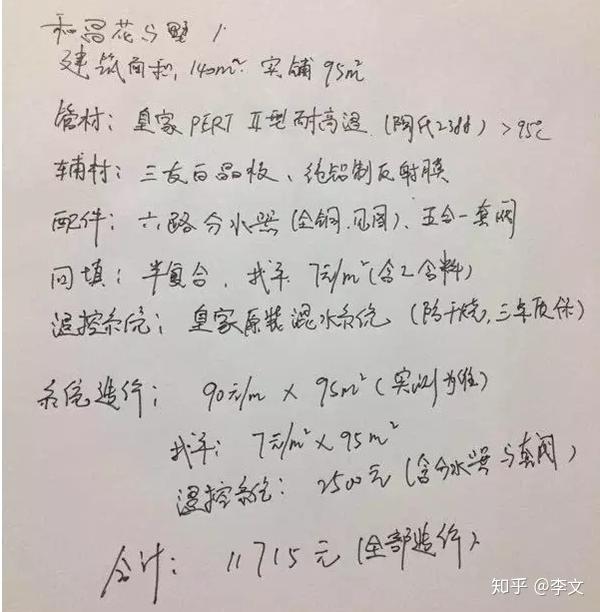 和昌花与墅
建筑面积, 140m². 实铺 95m²
管材: 皇家 PERT Ⅱ型耐高温 (陶氏2388) >95℃
辅材: 三友白晶板、纯铝制反射膜
配件: 六路分水器 (全铜.见图)、五合一套阀
回填: 半复合, 找平 7元/m² (含工含料)
温控系统: 皇家原装混水系统 (防干烧, 三年质保)
系统造价: 90元/m × 95m² (实测为准)
找平: 7元/m² × 95m²
温控系统: 2500元 (含分水器与套阀)
合计: 11715元 (全部造价)
知乎 @李文